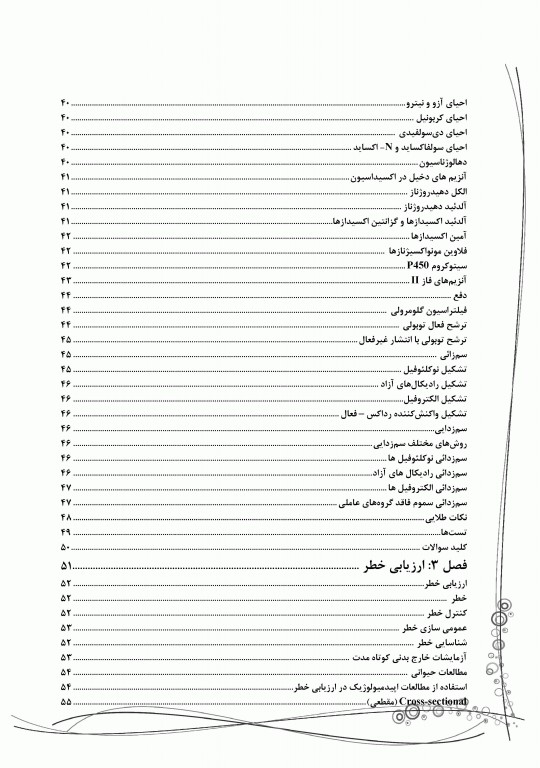 احیای آزو و نیترو ۴۰
احیای کربونیل ۴۰
احیای دی‌سولفیدی ۴۰
احیای سولفاکساید و N- اکساید ۴۰
دهالوژناسیون ۴۰
آنزیم های دخیل در اکسیداسیون ۴۱
الکل دهیدروژناز ۴۱
آلدئید دهیدروژناز ۴۱
آلدئید اکسیدازها و گزانتین اکسیدازها ۴۱
آمین اکسیدازها ۴۲
فلاوین مونواکسیژنازها ۴۲
سیتوکروم P450 ۴۲
آنزیم‌های فاز II ۴۳
دفع ۴۴
فیلتراسیون گلومرولی ۴۴
ترشح فعال توبولی ۴۴
ترشح توبولی با انتشار غیرفعال ۴۵
سم‌زائی ۴۵
تشکیل نوکلئوفیل ۴۵
تشکیل رادیکال‌های آزاد ۴۶
تشکیل الکتروفیل ۴۶
تشکیل واکنش‌کننده رداکس – فعال ۴۶
سم‌زدایی ۴۶
روش‌های مختلف سم‌زدایی ۴۶
سم‌زدائی نوکلئوفیل ها ۴۶
سم‌زدائی رادیکال های آزاد ۴۶
سم‌زدائی الکتروفیل ها ۴۷
سم‌زدائی سموم فاقد گروه‌های عاملی ۴۷
نکات طلایی ۴۸
تست‌ها ۴۹
کلید سوالات ۵۰
فصل ۳: ارزیابی خطر ۵۱
ارزیابی خطر ۵۲
خطر ۵۲
کنترل خطر ۵۲
عمومی سازی خطر ۵۳
شناسایی خطر ۵۲
آزمایشات خارج بدنی کوتاه مدت ۵۳
مطالعات حیوانی ۵۴
استفاده از مطالعات اپیدمیولوژیک در ارزیابی خطر ۵۴
Cross-sectional (مقطعی) ۵۵